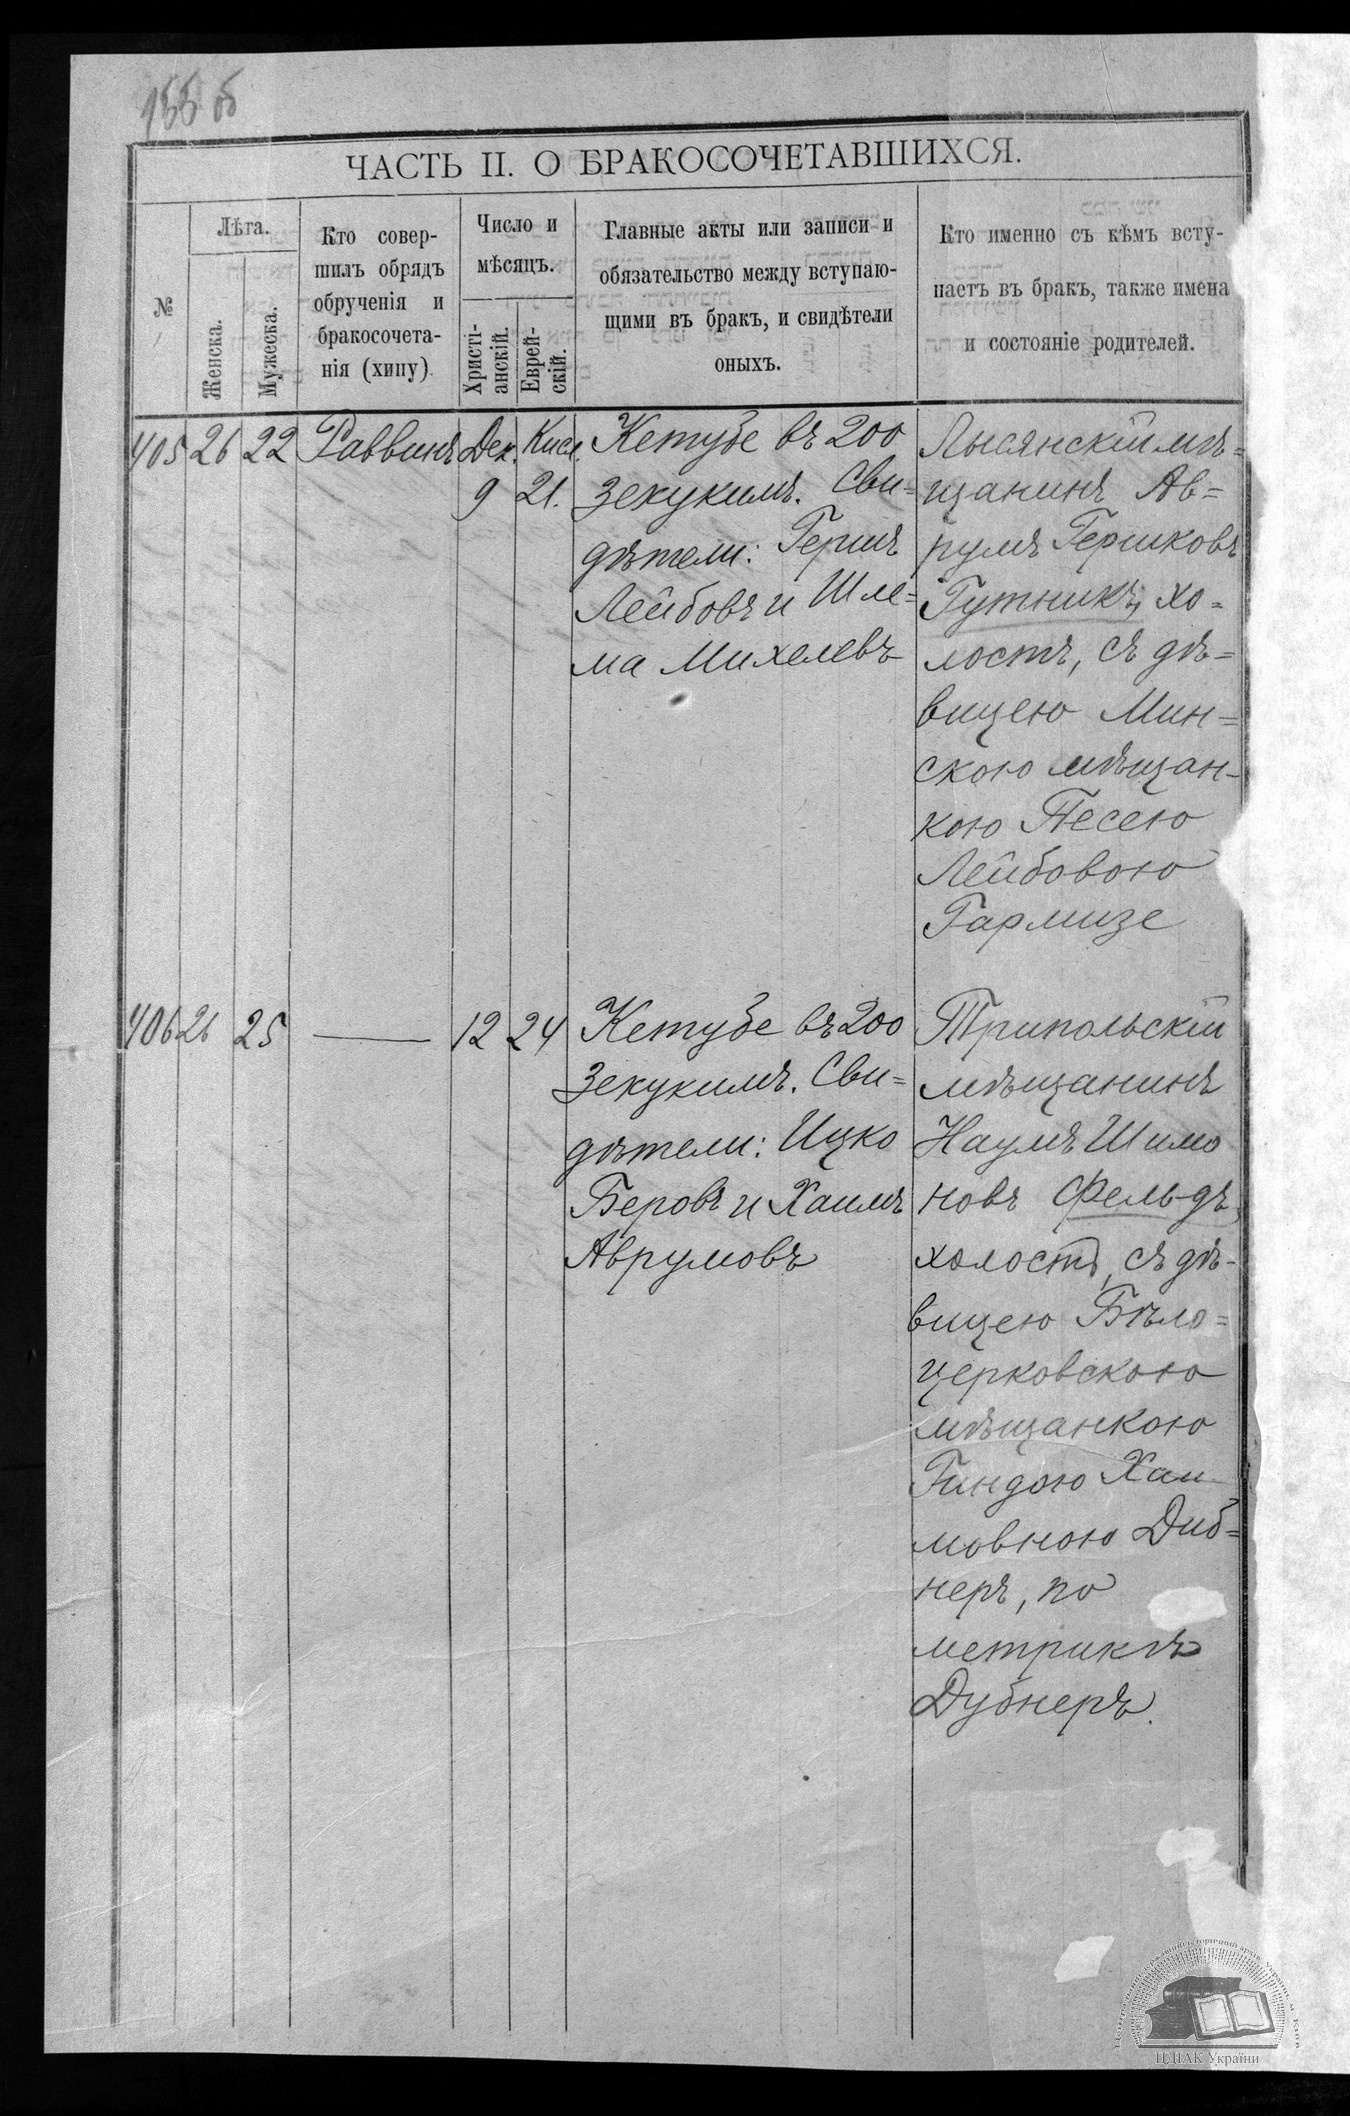 ЧАСТЬ II. О БРАКОСОЧЕТАВШИХСЯ.
№
Лѣта.
Женска.
Мужеска.
Кто совер-
шилъ обрядъ
обрученія и
бракосочета-
нія (хипу)
Число и
мѣсяцъ.
Христі-
анскій.
Еврей-
скій.
Главные акты или записи и
обязательство между вступаю-
щими въ бракъ, и свидѣтели
оныхъ.
Кто именно съ кѣмъ всту-
паетъ въ бракъ, также имена
и состояніе родителей.
405
26
22
Раввинъ
Дек.
9
Кисл.
21.
Кетубе въ 200
зекукимъ. Сви=
дѣтели: Гершъ
Лейбовъ и Шле=
ма Михелевъ
Лысянскій мѣ=
щанинъ Ав=
румъ Гершковъ
Гутникъ, хо=
лостъ, съ дѣ=
вицею Мин=
скою мѣщан-
кою Песею
Лейбовою
Гармизе
406
26
25
12
24
Кетубе въ 200
зекукимъ. Сви=
дѣтели: Ицко
Беровъ и Хаимъ
Аврумовъ
Трипольскій
мѣщанинъ
Наумъ Шимо
новъ Фельдъ,
холостъ, съ дѣ-
вицею Бѣло=
церковскою
мѣщанкою
Гиндою Хаи
мовною Диб=
неръ, по
метрикѣ
Дубнеръ.
ЦДІАК України